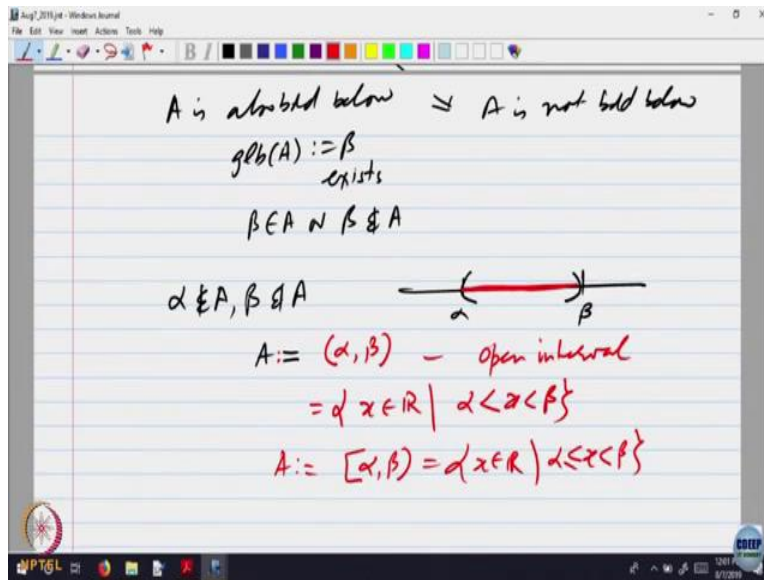 Aug7_2019.jnt - Windows Journal
File Edit View Insert Actions Tools Help
B I
A is also bdd below or A is not bdd below
glb(A) := β
exists
β∈A or β∉A
α∉A, β∉A
α β
A := (α, β) - open interval
= { x ∈ ℝ | α < x < β}
A := [α, β) = { x ∈ ℝ | α ≤ x < β}
NPTEL
CDEEP
12:01
8/7/2019